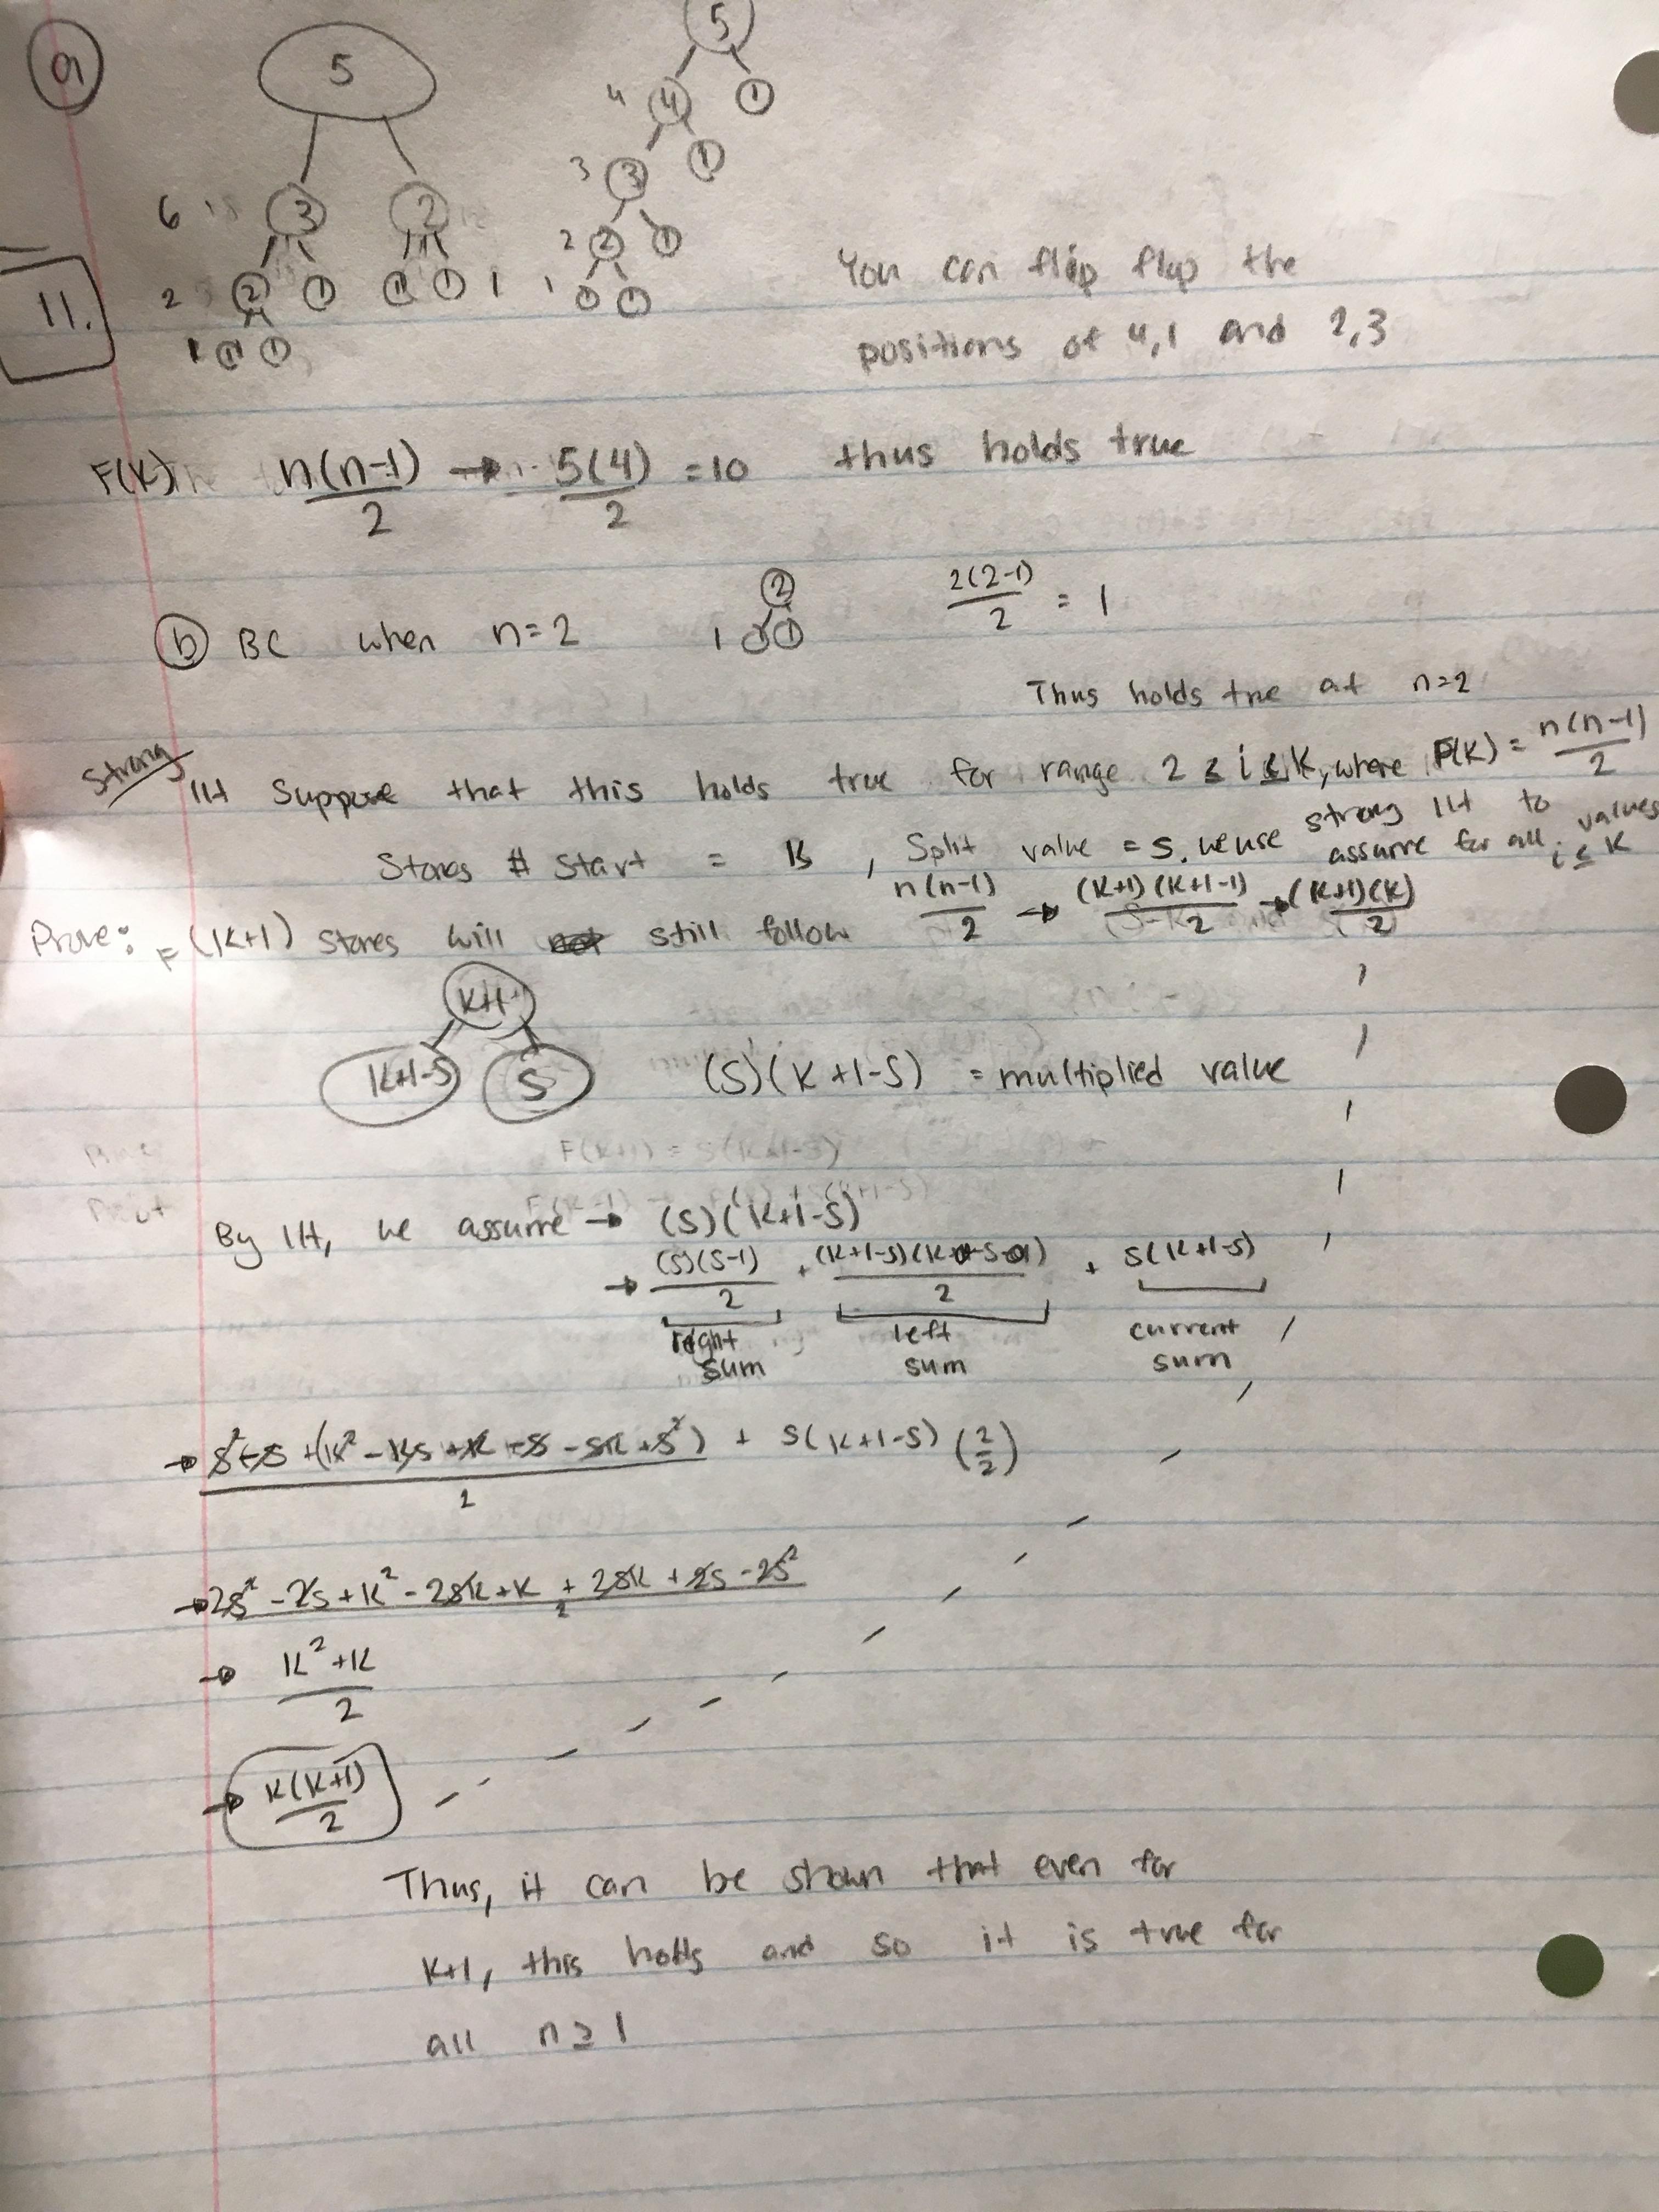 a
5
3 2
6
2 2 1 1 1 1
1 1 1
5
4 4 1
3 3 1
2 2 1
1 1 1
11.
You can flip flap the
positions of 4,1 and 2,3
F(K) n(n-1)/2 → 5(4)/2 = 10 thus holds true
b BC when n=2 2 1 1 1 2(2-1)/2 = 1
Thus holds true at n=2
Strong IH Suppose that this holds true for range 2 ≤ i ≤ K, where F(K) = n(n-1)/2
Stones # start = K, Split value = S. we use strong IH to assume for all values i ≤ K
Prove: F(K+1) stones will still follow n(n-1)/2 → (K+1)(K+1-1)/2 → (K+1)(K)/2
K+1
K+1-S S (S)(K+1-S) = multiplied value
F(K+1) = S(K+1-S)
By IH, we assume → (S)(K+1-S)
→ (S)(S-1)/2 + (K+1-S)(K-S)/2 + S(K+1-S)
right sum left sum current sum
→ S²-S+(K²-KS+K-S-SK+S²)/2 + S(K+1-S)(2/2)
→ 2S²-2S+K²-2SK+K+2SK+2S-2S²/2
→ K²+K/2
→ K(K+1)/2
Thus, it can be shown that even for
K+1, this holds and so it is true for
all n ≥ 1